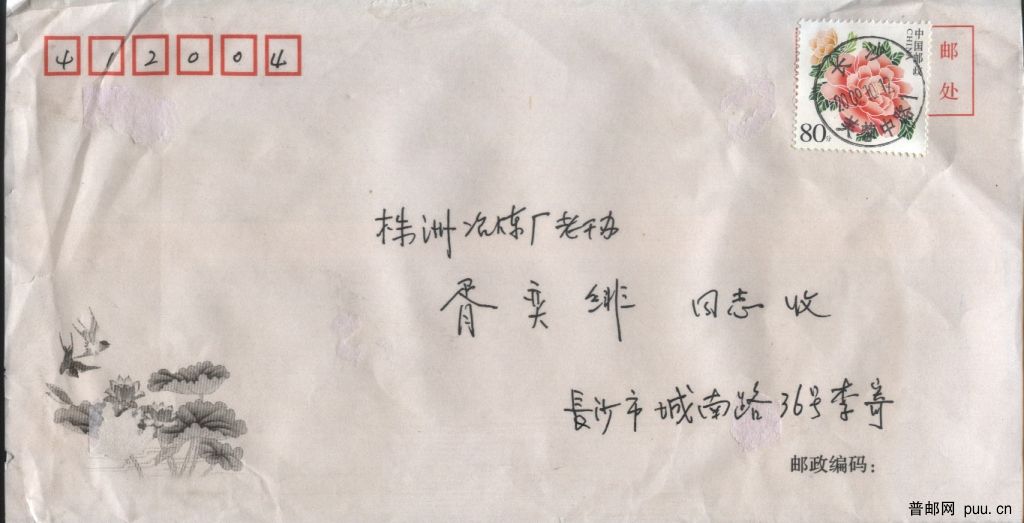 412004
中国邮政
CHINA
80分
邮
处
株洲冶炼厂老干办
胥奕绯 同志 收
長沙市城南路36号李奇
邮政编码：
普邮网 puu.cn